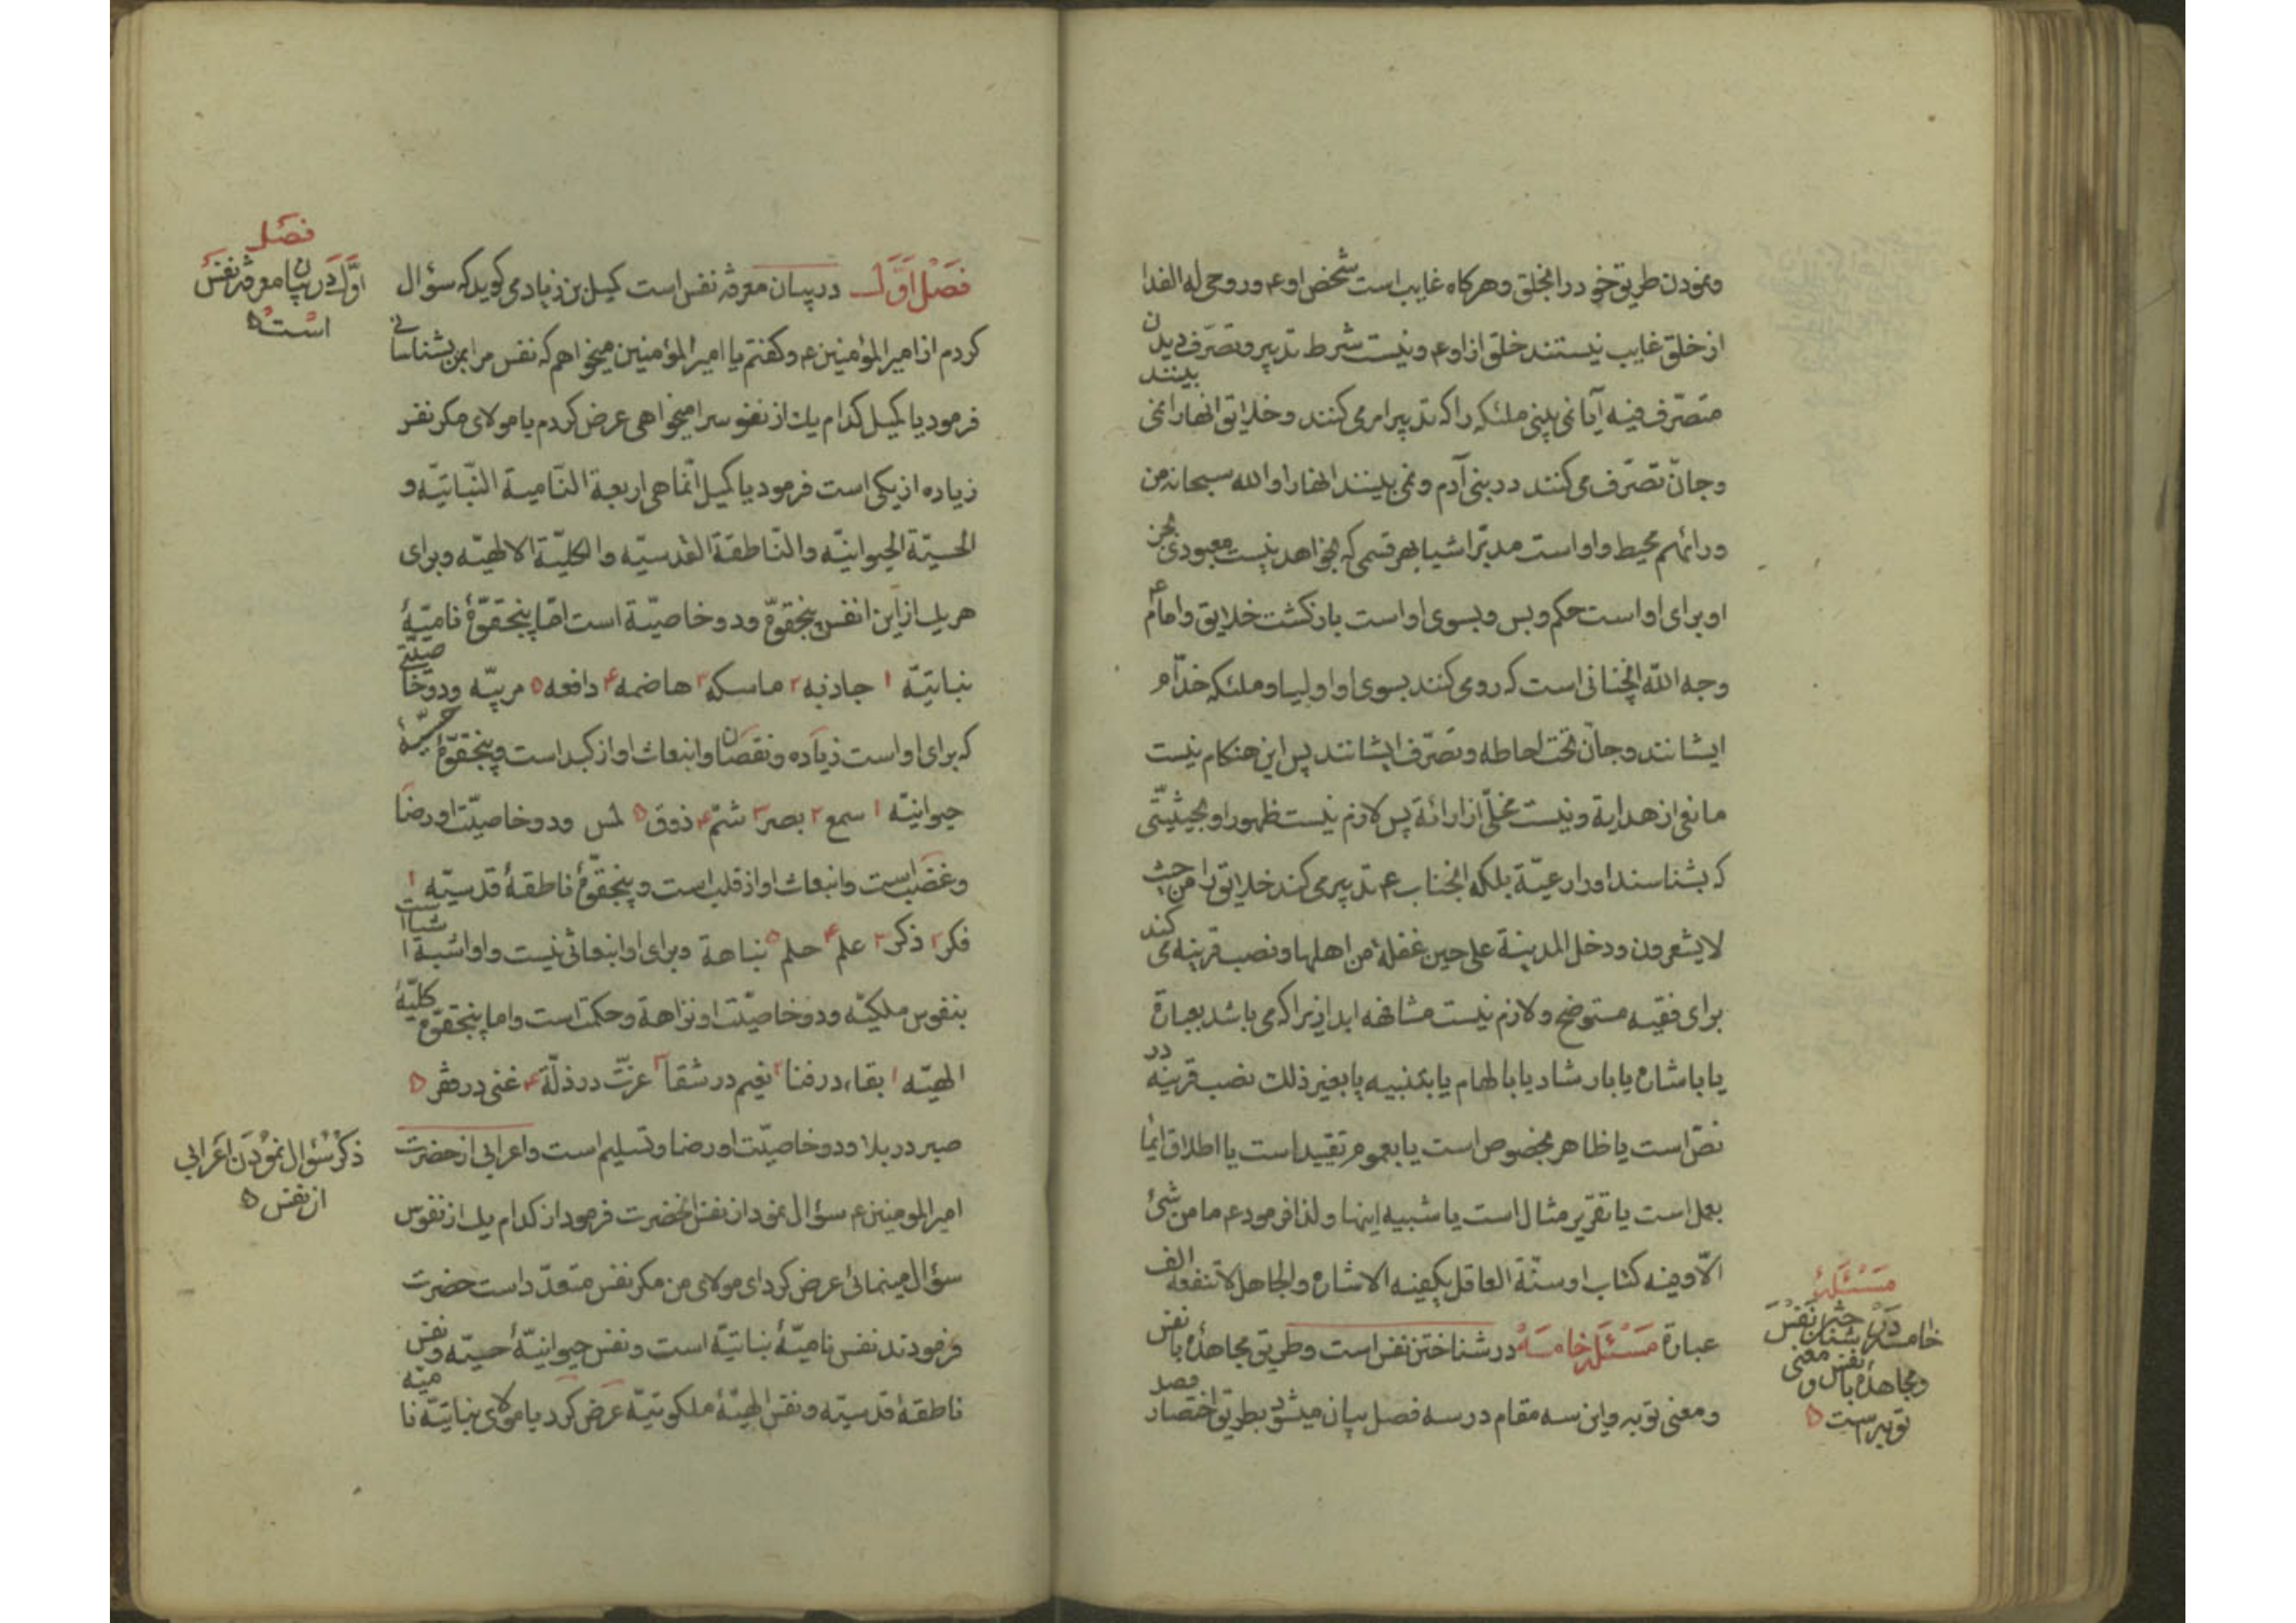 ونمودن طریق خود را بخلق وهرکاه غایب است شخص او ع وروحی له الفدا
از خلق غایب نیستند خلق از او ع ونیست شرط تدبیر وتصرّف دیدن
متصرّف فیه آیا نمی بینی ملئکه را که تدبیر امر می کنند وخلایق انها را نمی بینند
وجانّ تصرّف می کنند در بنی آدم ونمی بینند انها را والله سبحانه من
ورائهم محیط واو است مدبّر اشیا بهر قسمی که بخواهد نیست معبودی بجز
او برای او است حکم وبس وبسوی او است بازکشت خلایق وامام ع
وجه الله انچنانی است که رو می کنند بسوی او اولیا وملئکه خدّام
ایشانند وجانّ تحت احاطه وتصرّف ایشانند پس این هنکام نیست
مانعی از هدایة ونیست مخلّی از ارائة پس لازم نیست ظهور او بحیثیّتی
که بشناسند او را رعیّة بلکه انجناب ع تدبیر می کند خلایق را من حیث
لا یشعرون ودخل المدینة علی حین غفلة من اهلها ونصب قرینه می کند
برای فقیه مستوضح ولازم نیست مشافهه ابدا زیرا که می باشد بعبارة
یا باشاره یا بارشاد یا بالهام یا بتنبیه یا بغیر ذلک نصب قرینه در
نصّ است یا ظاهر بخصوص است یا بعموم تقیید است یا اطلاق ایما
بعمل است یا تقریر مثال است یا شبیه اینها ولذا فرمود ع ما من شیٔ
الّا وفیه کتاب او سنّة العاقل یکفیه الاشاره والجاهل لا تنفعه الف
عبارة مسئلهٔ خامسه در شناختن نفس است وطریق مجاهدهٔ با نفس
ومعنی توبه واین سه مقام در سه فصل بیان میشود بطریق اختصار فصد
مسئلهٔ
خامسه در شناختن نفس
ومجاهدهٔ با نفس ومعنی
توبه است ۵
فصل اوّل در بیان معرفة نفس است کمیل بن زیاد می کوید که سؤال
کردم از امیر المؤمنین ع وکفتم یا امیر المؤمنین میخواهم که نفس مرا بمن بشناسانی
فرمود یا کمیل کدام یک از نفوس را میخواهی عرض کردم یا مولای مکر نفس
زیاده از یکی است فرمود یا کمیل انّما هی اربعة النّامیة النّباتیّه و
الحسیّة الحیوانیّه والنّاطقة القدسیّه والکلیّة الالهیّه وبرای
هر یک از این انفس پنجقوّه ودو خاصیّة است امّا پنجقوّهٔ نامیّهٔ
نباتیّه ۱ جاذبه ۲ ماسکه ۳ هاضمه ۴ دافعه ۵ مربیّه ودو خاصیّتی
که برای او است زیاده ونقصان وانبعاث او از کبد است وپنجقوّهٔ حسیّهٔ
حیوانیّه ۱ سمع ۲ بصر ۳ شمّ ۴ ذوق ۵ لمس ودو خاصیّت او رضا
وغضب است وانبعاث او از قلب است وپنجقوّهٔ ناطقهٔ قدسیّه ۱
فکر ۲ ذکر ۳ علم ۴ حلم ۵ نباهة وبرای او انبعاثی نیست واو اشبه اشیا است
بنفوس ملکیّه ودو خاصیّت او نزاهة وحکمت است واما پنجقوّهٔ کلیّهٔ
الهیّه ۱ بقاء در فنا ۲ نعیم در شقا ۳ عزّت در ذلّة ۴ غنی در فقر ۵
صبر در بلا ودو خاصیّت او رضا وتسلیم است واعرابی از حضرت
امیر المومنین ع سؤال نمود از نفس انحضرت فرمود از کدام یک از نفوس
سؤال مینمائی عرض کرد ای مولای من مکر نفس متعدّد است حضرت
فرمودند نفس نامیّهٔ نباتیّة است ونفس حیوانیّهٔ حسیّه ونفس
ناطقهٔ قدسیّه ونفس الهیّهٔ ملکوتیّة عرض کرد یا مولای نباتیّة نامیّه
فصل
اوّل در بیان معرفة نفس
است ۵
ذکر سؤال نمودن اعرابی
از نفس ۵